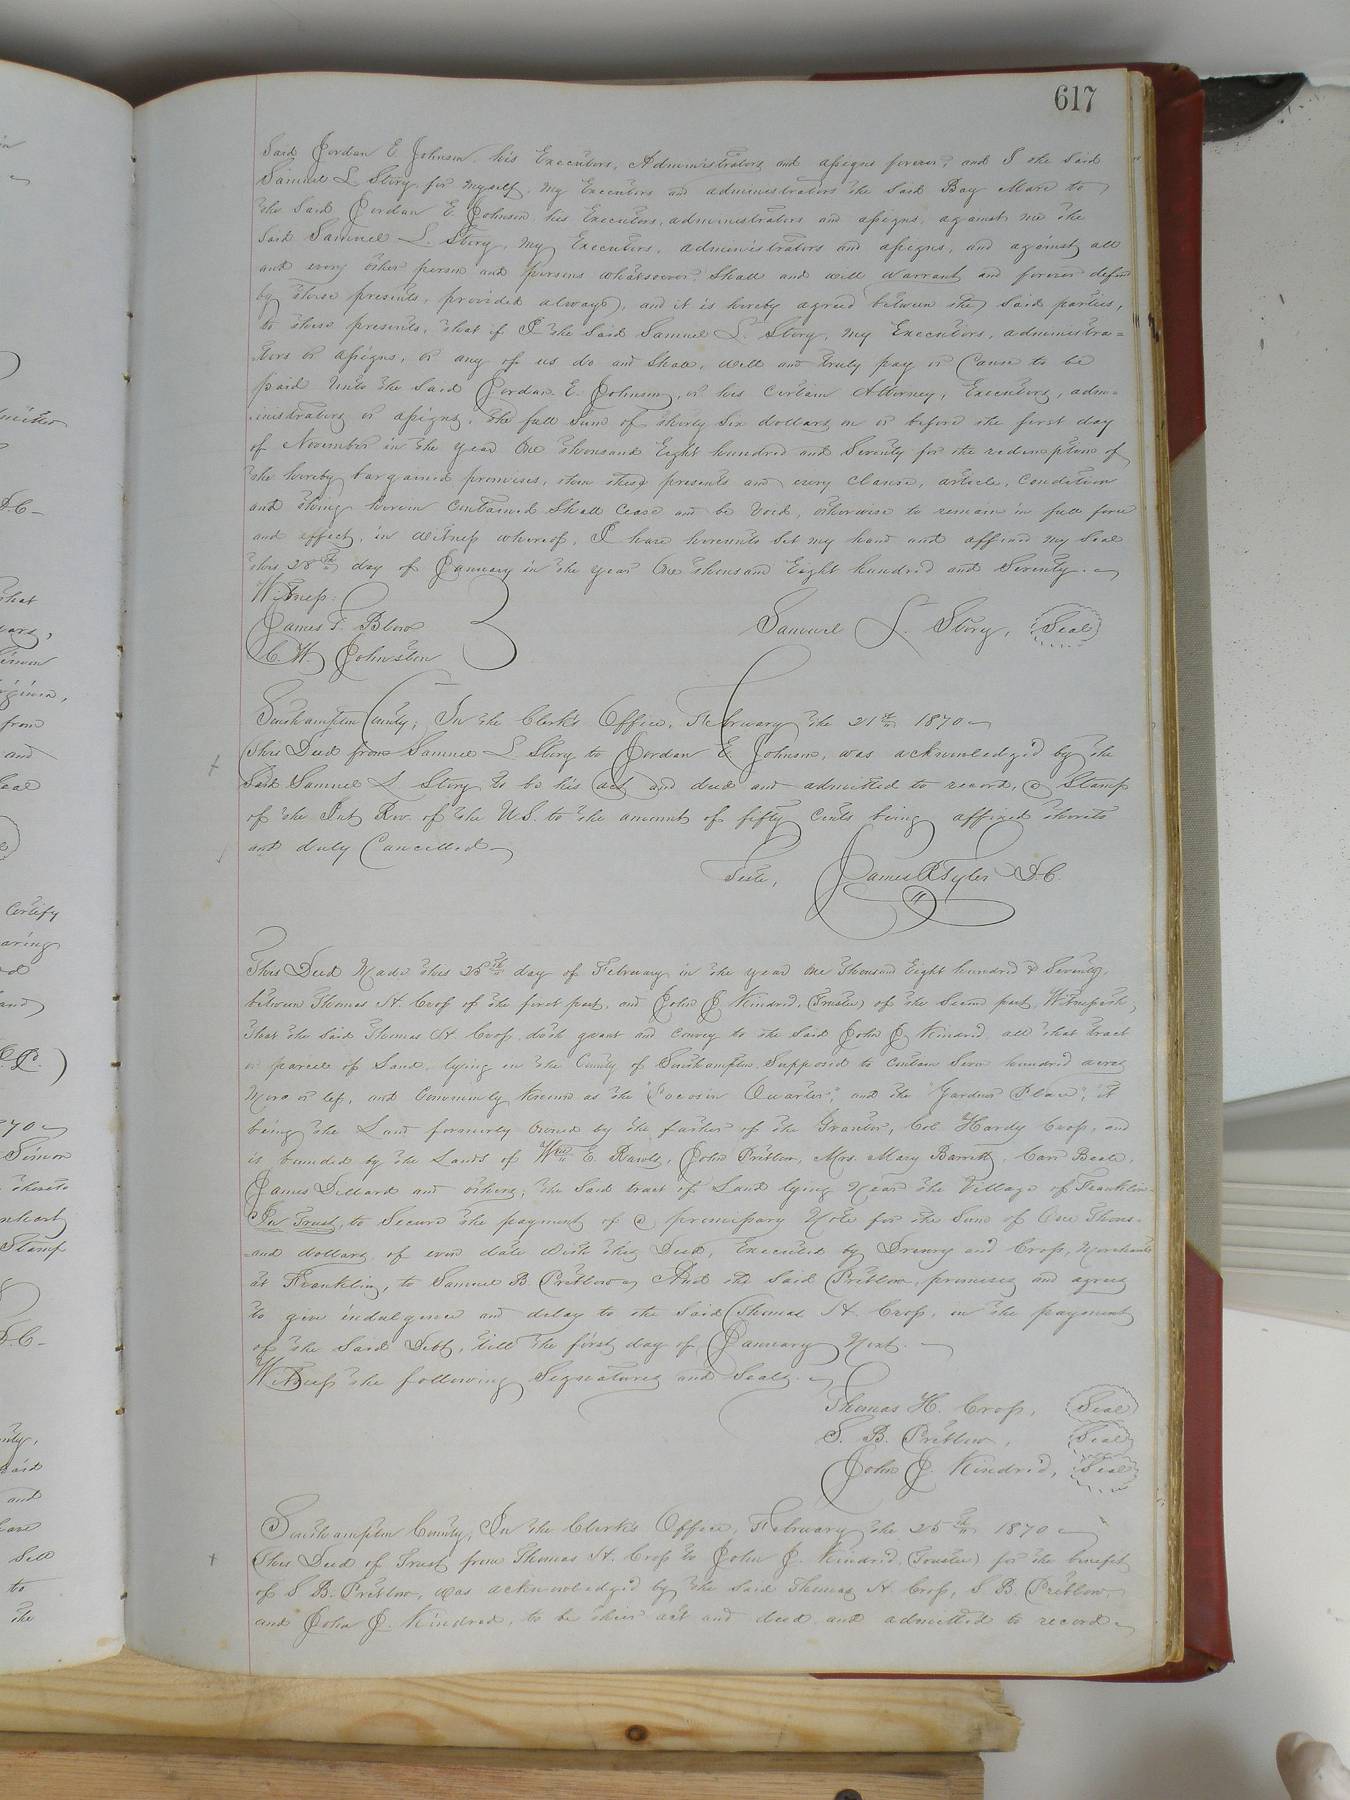 617
Said Jordan E Johnson, his Executors, Administrators and assigns forever, and I the Said
Samuel L Story, for myself, my Executors and administrators the Said Bay Mare to
the Said Jordan E. Johnson, his Executors, administrators and assigns, against me the
Said Samuel L. Story, my Executors, administrators and assigns, and against all
and every other person and persons whatsoever Shall and will warrant and forever defend
by these presents, provided always, and it is hereby agreed between the Said parties,
to these presents, that if I the Said Samuel L. Story, my Executors, administra=
tors or assigns, or any of us do and Shall, well and truly pay or Cause to be
paid Unto the Said Jordan E. Johnson, or his Certain Attorney, Executors, adm=
inistrators or assigns, the full Sum of thirty Six dollars on or before the first day
of November in the year One thousand Eight hundred and Seventy for the redemption of
the hereby bargained premises, then these presents and every Clause, article, Condition
and thing herein Contained Shall Cease and be Void, otherwise to remain in full force
and effect, in Witness whereof, I have hereunto Set my hand and affixed my Seal
this 28th day of January in the year One thousand Eight hundred and Seventy.
Witness:
James T. Blow
C. W. Johnston
Samuel L. Story, Seal
Southampton County; In the Clerk's Office, February the 21st 1870
This Deed from Samuel L Story to Jordan E Johnson, was acknowledged by the
Said Samuel L Story to be his act and deed and admitted to record, a Stamp
of the Int Rev. of the U.S. to the amount of fifty Cents being affixed thereto
and duly Cancelled
Teste, James R Tyler D.C.
This Deed Made this 25th day of February in the year One Thousand Eight hundred & Seventy,
between Thomas H. Cross of the first part, and John J. Kindred, (Trustee) of the Second part, Witnesseth,
That the Said Thomas H. Cross, doth grant and Convey to the Said John J Kindred all that tract
or parcel of Land, lying in the County of Southampton, Supposed to Contain Seven hundred acres
More or less, and Commonly Known as the "Pocosin Quarter," and the "Gardner Place", it
being the Land formerly Owned by the father of the Grantor, Col Hardy Cross, and
is bounded by the Lands of Wm E. Rawls, John Pretlow, Mrs. Mary Barrett, Carr Beale,
James Dillard and others; the Said tract of Land lying Near the Village of Franklin
In Trust, to Secure the payment of a promissory Note for the Sum of One Thous-
and dollars, of even date With this Deed, Executed by Drewry and Cross, Merchants
at Franklin, to Samuel B Pretlow, And the Said Pretlow, promises and agrees
to give indulgence and delay to the Said Thomas H. Cross, in the payment
of the Said Debt, till the first day of January Next.
Witness the following Signatures and Seals.
Thomas H. Cross, Seal
S. B. Pretlow, Seal
John J. Kindred, Seal
Southampton County, In the Clerk's Office, February the 25th 1870
This Deed of Trust from Thomas H. Cross to John J. Kindred, (Trustee) for the benefit
of S. B. Pretlow, was acknowledged by the Said Thomas H Cross, S B. Pretlow,
and John J. Kindred, to be their act and deed and admitted to record